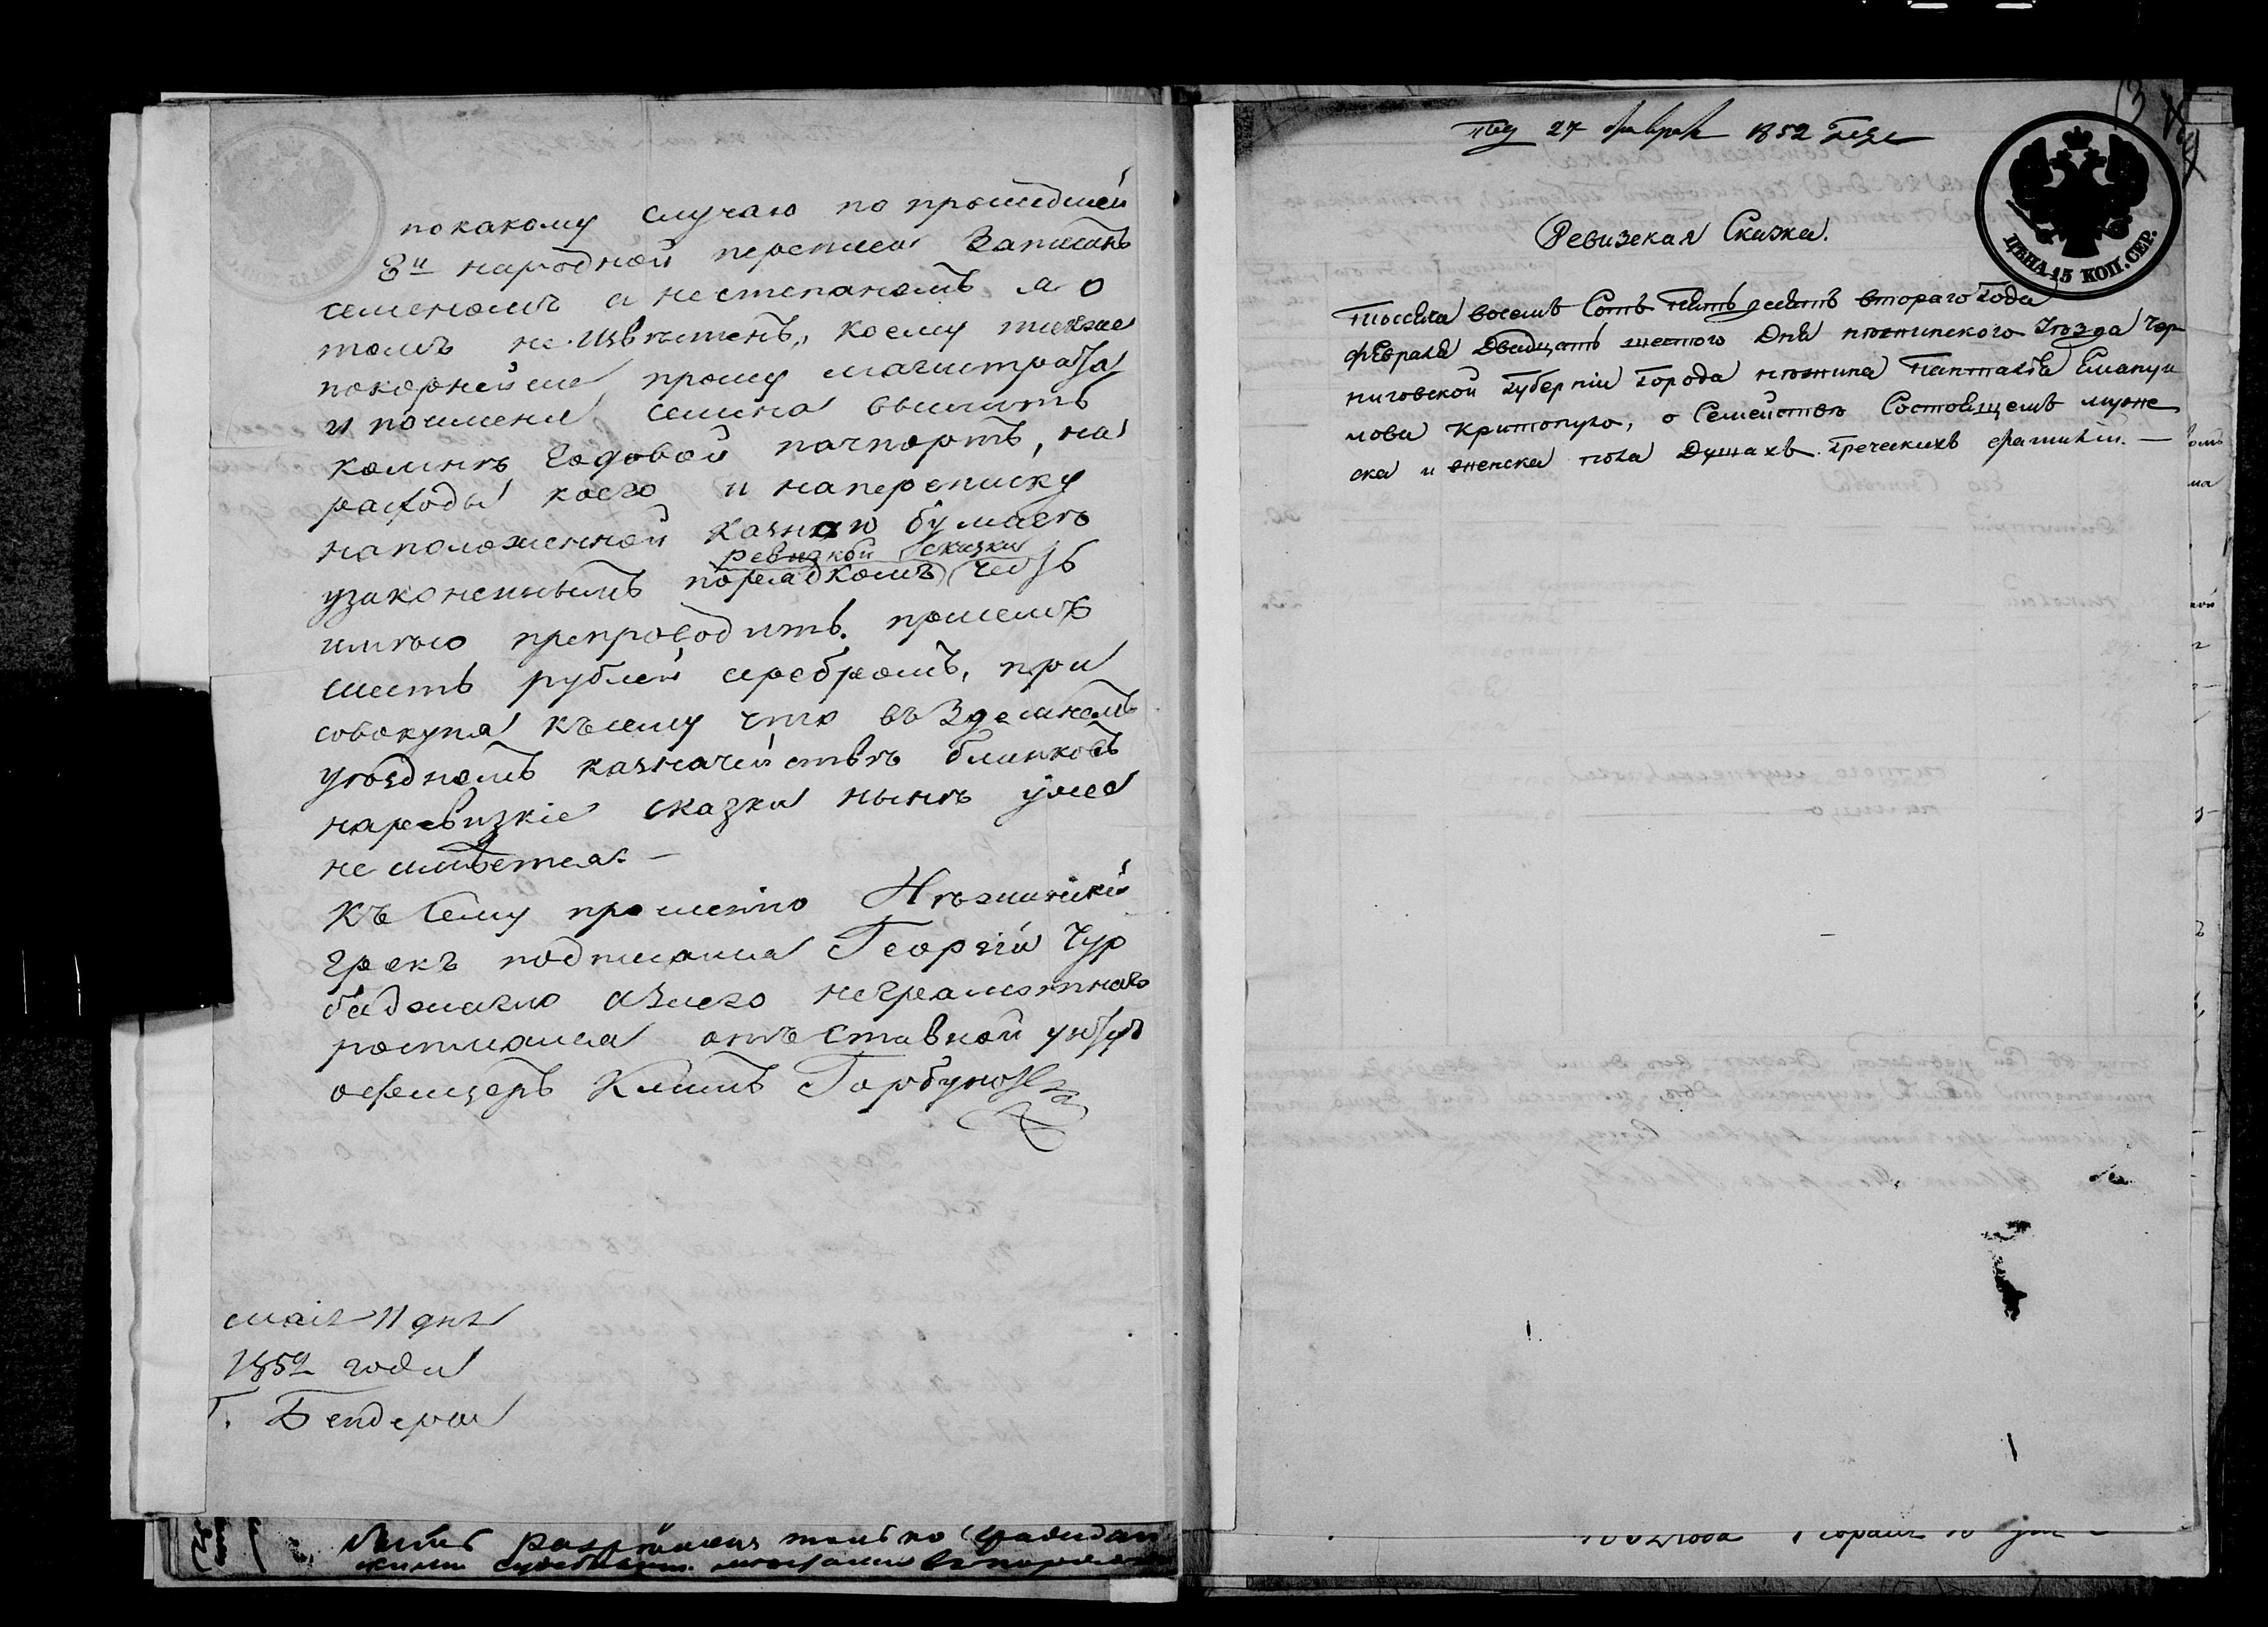 по какому случаю по прошедшей
8й народной переписи Записанъ
семеномъ а не степаномъ, а о
томъ не извѣстенъ, коему также
покорнейше прошу магистрата
и по имени семена выслать
комнѣ Годовой пачпортъ, на
расходы коего и на переписку
на положенной казною бумаги
ревизкой сказки
узаконеннымъ порядкомъ честь
имѣю препроводить при семъ
шесть рублей серебромъ, при
совокупляя къ сему что въ Здешнемъ
уѣздномъ казначействѣ бланковъ
на ревизкіе сказки нынѣ уже
не имѣется. —
Къ Сему прошенію Нѣжинскій
грекъ подписался Георгій Чур
баджогло а за него неграмотнаго
росписался отъставной унтеръ
офицеръ Климъ Горбунов
маія 11 дня
1852 года
Г. Бендеры
только
13
27 февраля 1852 года
Ревизская Сказка.
ЦѢНА 15 КОП. СЕР.
Тысяча восемь Сотъ пять десятъ втораго Года
февраля Двадцать шестого Дня нѣжинского Уѣзда Чер
ниговской Губерніи Города нѣжина Пантазія Емануи
лова Критопуло, о Семействѣ Состоящемъ мужес
ска и женска пола Душахъ Греческихъ фамилій. —